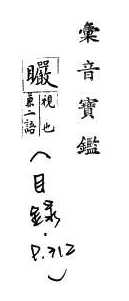 彙音寶鑑
矙
視也
兼二語
(目錄.P.312)